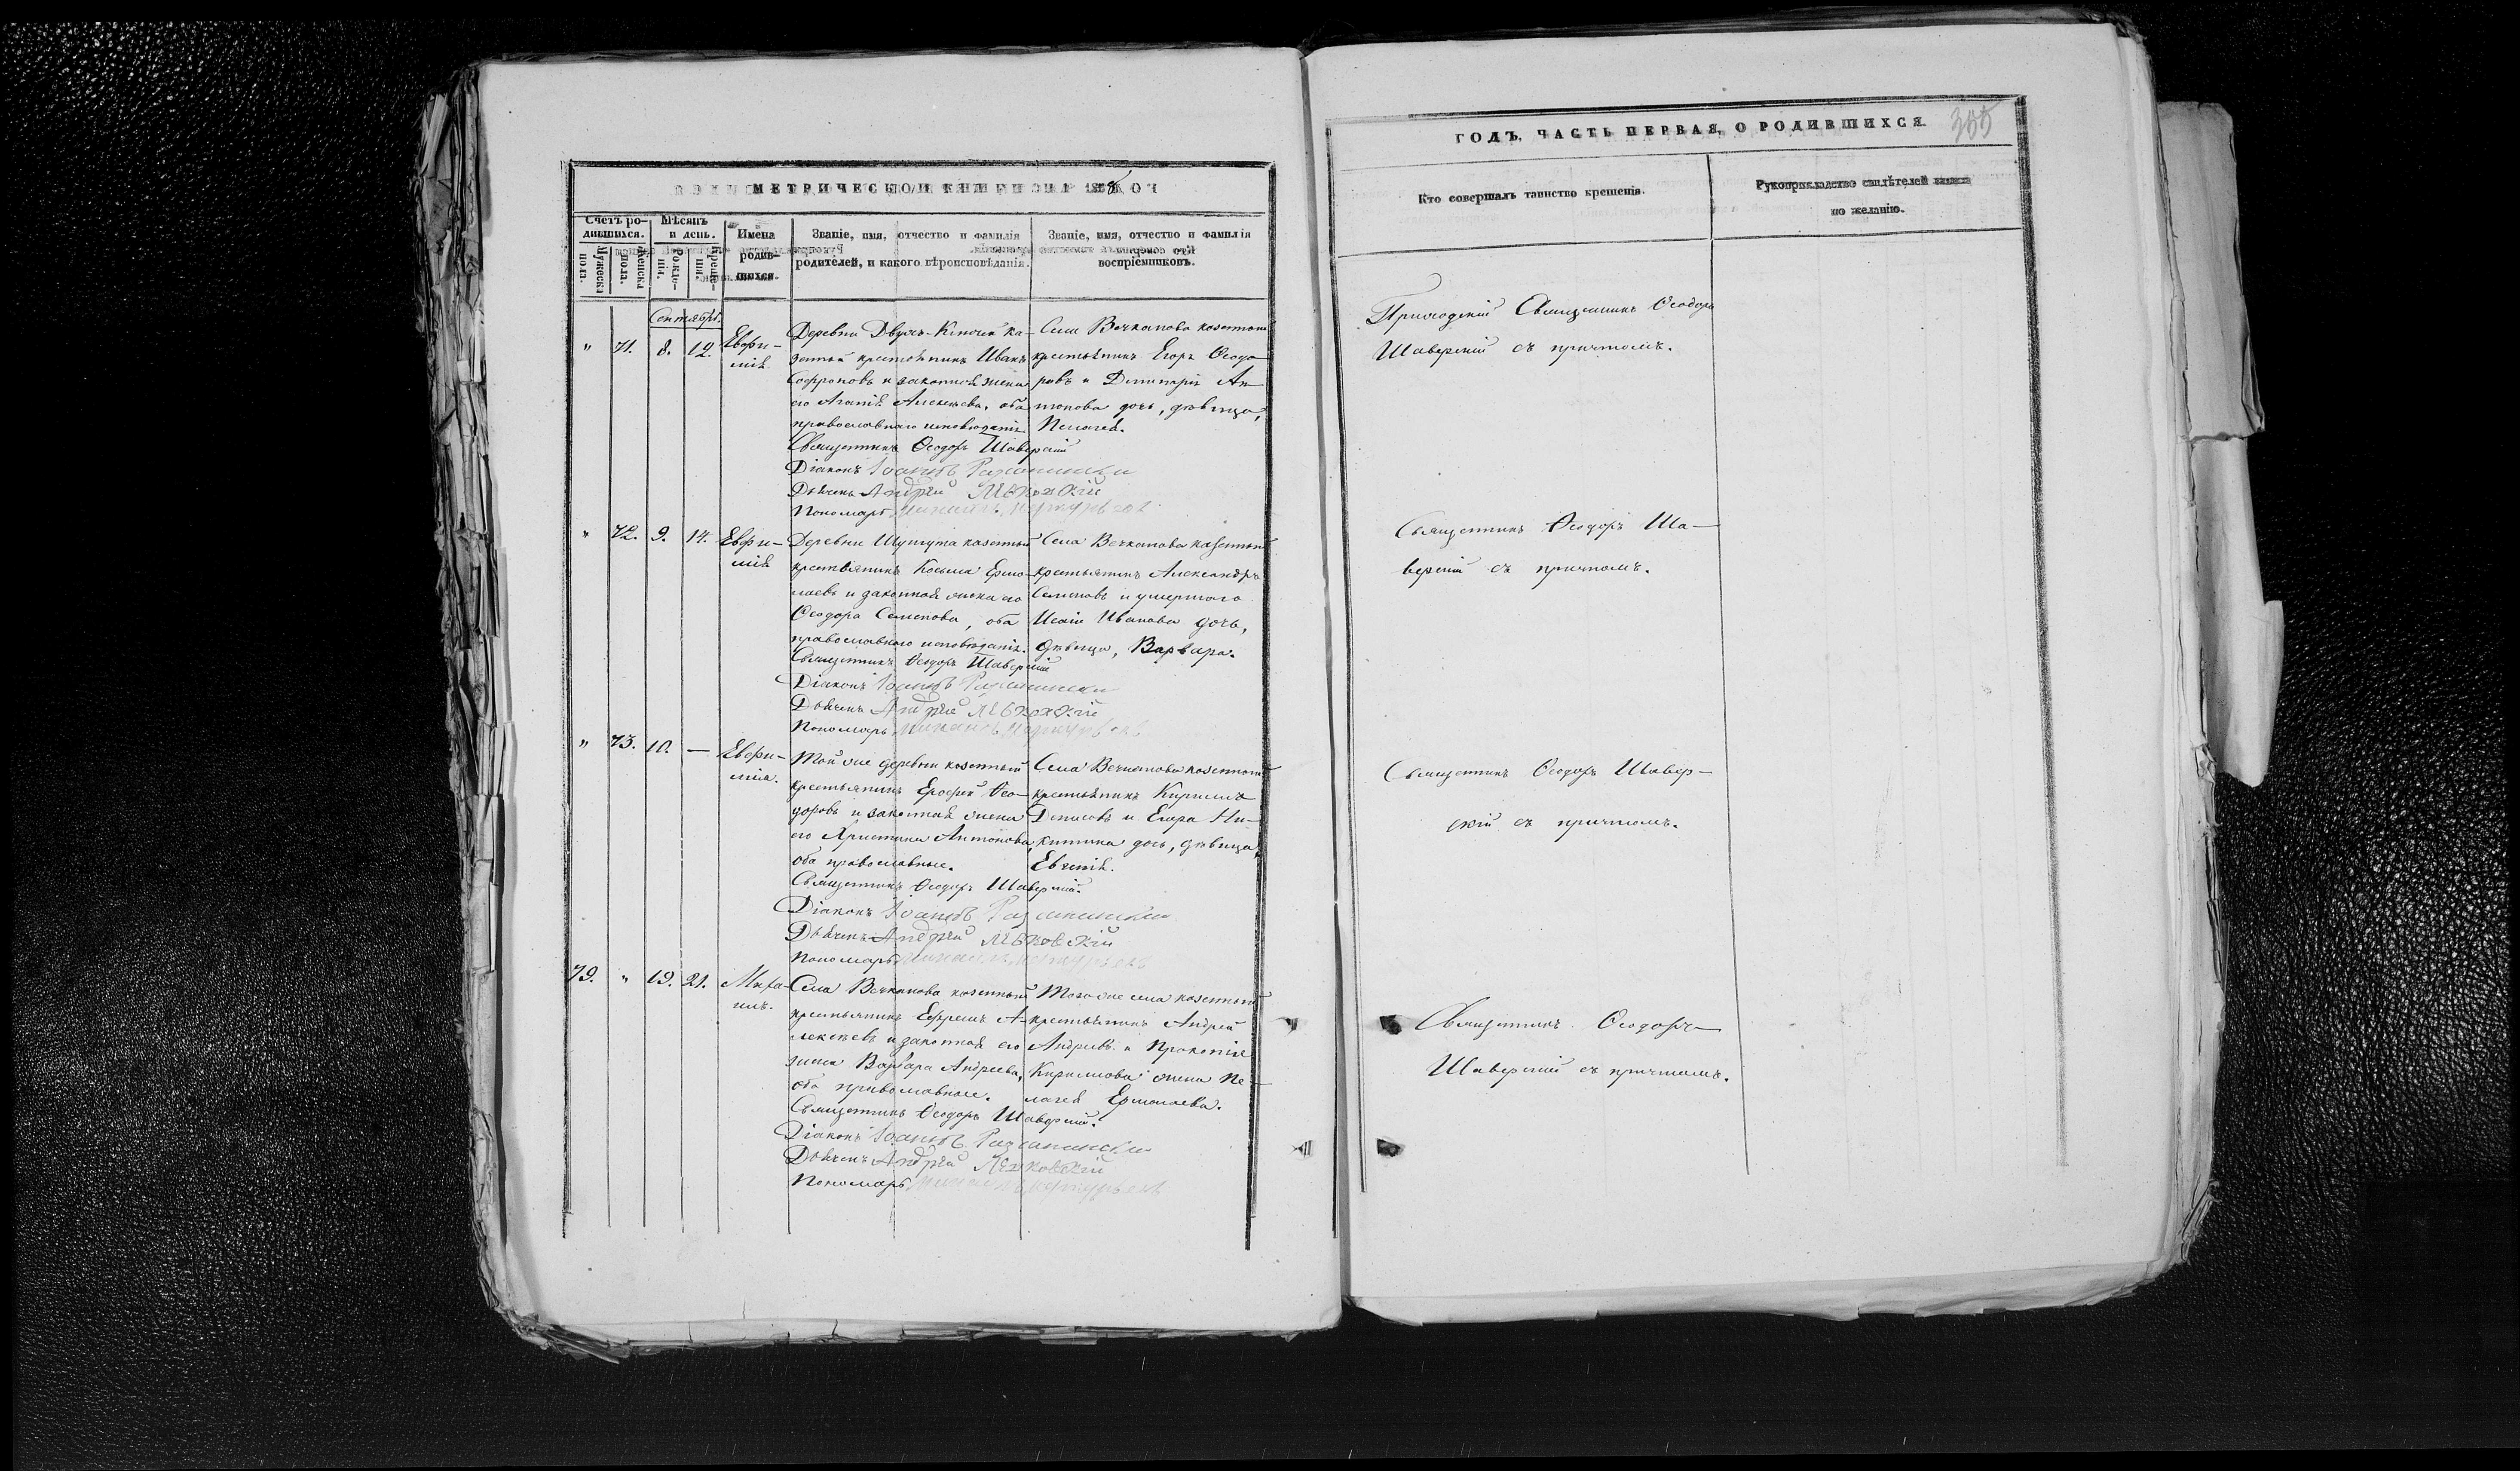 МЕТРИЧЕСКОЙ КНИГИ НА 1858
Счетъ ро-
дившихся.
Мужеска
пола.
Женска
пола.
Мѣсяцъ
и день.
Рожде-
нія.
Креще-
нія.
Имена
родив-
шихся.
Званіе, имя, отчество и фамилія
родителей, и какого вѣроисповѣданія.
Званіе, имя, отчество и фамилія
воспріемниковъ.
Сентябрь.
" 71. 8. 12. Евфи-
мія
Деревни Двухъ-Ключей ка-
зенный крестьянинъ Иванъ
Софроновъ и законная жена
его Агапія Алексѣева, оба
православнаго исповѣданія.
Священникъ Ѳеодоръ Шаверскій
Діаконъ Іоаннъ
Дьячекъ Андрей
Пономарь
Села Вечканова казенный
крестьянинъ Егоръ Ѳеодо-
ровъ и Димитрія Ан-
тонова дочь, дѣвица,
Пелагея.
" 72. 9. 14. Евфи-
мія
Деревни Шунгута казенный
крестьянинъ Косьма Ермо-
лаевъ и законная жена его
Ѳеодора Семенова, оба
православнаго исповѣданія.
Священникъ Ѳеодоръ Шаверскій
Діаконъ Іоаннъ
Дьячекъ Андрей
Пономарь
Села Вечканова казенный
крестьянинъ Александръ
Семеновъ и умершаго
Исаіи Иванова дочь,
дѣвица, Варвара.
" 73. 10. — Евфи-
мія.
Той же деревни казенный
крестьянинъ Ерофей Ѳео-
доровъ и законная жена
его Христина Антонова,
оба православные.
Священникъ Ѳеодоръ Шаверскій.
Діаконъ Іоаннъ
Дьячекъ Андрей
Пономарь
Села Вечканова казенный
крестьянинъ Кириллъ
Денисовъ и Егора Ни-
китина дочь, дѣвица,
Евгенія.
79. " 19. 21. Миха-
илъ.
Села Вечканова казенный
крестьянинъ Ефремъ А-
лексѣевъ и законная его
жена Варвара Андреева,
оба православные.
Священникъ Ѳеодоръ Шаверскій.
Діаконъ Іоаннъ
Дьячекъ Андрей
Пономарь
Того же села казенный
крестьянинъ Андрей
Андреевъ и Прокопія
Кириллова жена Пе-
лагея Ермолаева.
ГОДЪ, ЧАСТЬ ПЕРВАЯ, О РОДИВШИХСЯ.
305
Кто совершалъ таинство крещенія.
Рукоприкладство свидѣтелей записи
по желанію.
Приходскій Священникъ Ѳеодоръ
Шаверскій съ причтомъ.
Священникъ Ѳеодоръ Ша-
верскій съ причтомъ.
Священникъ Ѳеодоръ Шавер-
скій съ причтомъ.
Священникъ Ѳеодоръ
Шаверскій съ причтомъ.